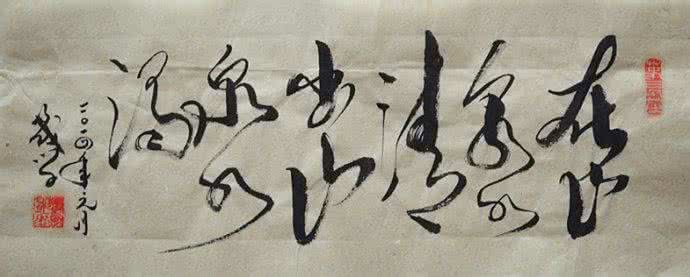 在山
泉水
清
出山
泉水
濁
二〇一四年元月